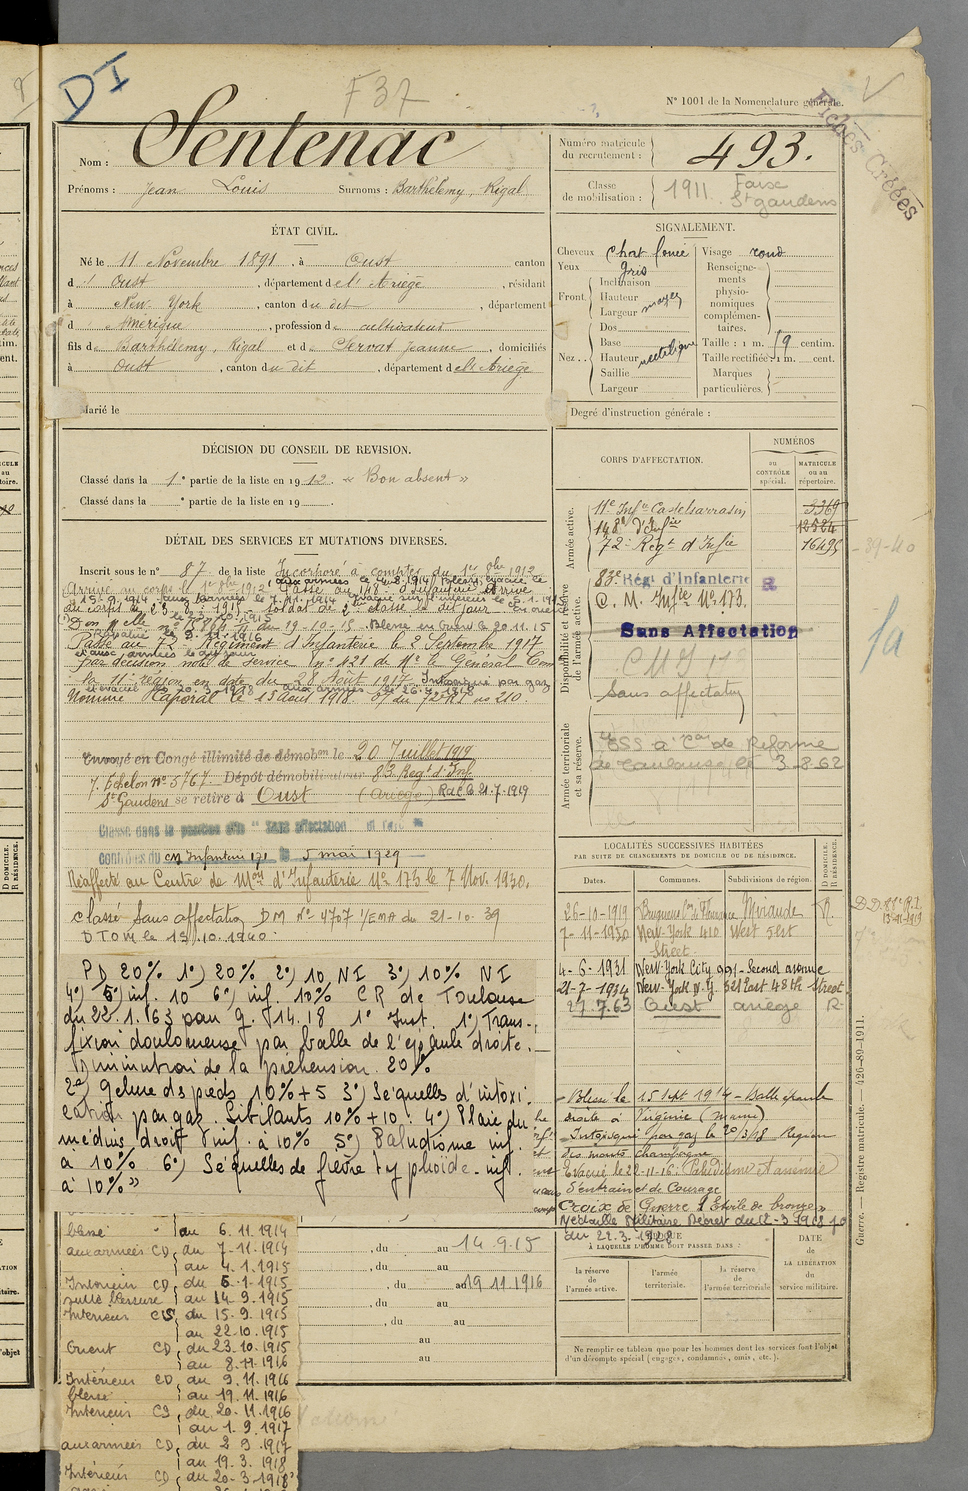 DI
F 37
N° 1001 de la Nomenclature générale.
Fiches Créées
Nom : Sentenac
Prénoms : Jean Louis Surnoms : Barthélemy, Rigal
Numéro matricule du recrutement : 493.
Classe de mobilisation : 1911 Foise St gaudens
ÉTAT CIVIL.
Né le 11 Novembre 1891, à Oust canton
d' Oust, département de l'Ariège, résidant
à New-York, canton du dit, département
d' Amérique, profession de cultivateur
fils de Barthélemy, Rigal et de Servat Jeanne, domiciliés
à Oust, canton du dit, département de l'Ariège
Marié le
SIGNALEMENT.
Cheveux chat. foncé Visage rond
Yeux gris
Front Inclinaison
Hauteur moyen
Largeur
Nez Dos
Base
Hauteur rectiligne
Saillie
Largeur
Renseignements physionomiques complémentaires.
Taille : 1 m. 59 centim.
Taille rectifiée : 1 m. cent.
Marques particulières.
Degré d'instruction générale :
DÉCISION DU CONSEIL DE REVISION.
Classé dans la 1e partie de la liste en 1912. « Bon absent »
Classé dans la e partie de la liste en 19
DÉTAIL DES SERVICES ET MUTATIONS DIVERSES.
Inscrit sous le n° 87 de la liste Incorporé à compter du 1er 8bre 1912
Arrivé au corps le 1er 8bre 1912 Passé au 148e d'Infanterie Arrivé
au corps le 23-8-1915 soldat de 2e classe le dit jour
du 19-10-15 Blessé en Orient le 20.11.15
Passé au 72e Régiment d'Infanterie le 2 Septembre 1917
par décision note de service n° 421 de Mr le Général Com
la 11e région en date du 28 Août 1917. Intoxiqué par gaz
et évacué le 20.3.1918 aux armées le 26.7.1918
Nommé Caporal le 15 Août 1918. OJ du 72e RI no 210.
Envoyé en Congé illimité de démobon le 20 Juillet 1919
7e Echelon No 5767 Dépôt démobilisateur 83e Regt d'Inf
St Gaudens se retire à Oust (Ariège) Rac le 21-7-1919
Classé dans la position dite "Sans affectation" et rayé des
contrôles du CM Infanterie 171 le 5 mai 1929
Réaffecté au Centre de Mon d'Infanterie No 173 le 7 Nov. 1930.
classé Sans affectation DM No 4707 1/EMA du 21-10-39
DTOM le 15.10.1940.
PD 20% 1°) 20% 2°) 10 NI 3°) 10% NI
4°) 5°) inf. 10 6°) inf. 10% CR de Toulouse
du 22.1.63 pour g. 14.18 1° Inst. 1°) Trans-
fixion douloureuse par balle de l'épaule droite.
Diminution de la préhension 20%
2°) Gelure des pieds 10%+5 3°) Séquelles d'intoxi
cation par gaz. Sibilants 10%+10. 4°) Plaie du
médius droit inf. à 10% 5°) Paludisme inf.
à 10% 6°) Séquelles de fièvre typhoïde - inf.
à 10% »
blessé au 6.11.1914
aux armées CD du 7-11.1914
au 4.1.1915
Intérieur CD du 5-1-1915
suite blessure au 14.9.1915
Intérieur CS du 15.9.1915
au 22.10.1915
Orient CD du 23.10.1915
au 8.11.1916
Intérieur CD du 9.11.1916
blessé au 19.11.1916
Intérieur CS du 20.11.1916
au 1.9.1917
aux armées CD du 2 9.1917
au 19.3.1918
Intérieur CD du 20-3-1918
, du au 14 9.15
, du au 19 11 1916
, du au
, du au
au
au
CORPS D'AFFECTATION.
NUMÉROS
au CONTRÔLE spécial.
MATRICULE ou au répertoire.
Armée active.
11e Infie Castelsarrasin 3369
148e d'Infie 12524
72e Regt d'Infie 16495
Disponibilité et réserve de l'armée active.
83e Régt d'Infanterie R
C. M. Inftie No 173.
Sans Affectation
Sans affectation
Armée territoriale et sa réserve.
ESS à Con de Réforme
de Toulouse, le 3-8-62
39-40
LOCALITÉS SUCCESSIVES HABITÉES
PAR SUITE DE CHANGEMENTS DE DOMICILE OU DE RÉSIDENCE.
Dates. Communes. Subdivisions de région. D DOMICILE. R RÉSIDENCE.
26-10-1919 Mirande R.
7-11-1930 New-York 410 West 51st Street
4-6-1931 New-York City 901-Second avenue
21-7-1934 New-York N.Y. 321 East 48th Street
27.7.63 Oust ariège R
Blessé le 15 Sept 1914 - Balle épaule
droite à Virginie (marne)
Intoxiqué par gaz le 20/3/18 - Région
des monts Champagne
Evacué le 22-11-16: Paludisme et anémie
d'entrain et de Courage
Croix de Guerre 1 Etoile de bronze »
Médaille Militaire Décret du 12-3-1928 jo
du 22.3.1928
ÉPOQUE
À LAQUELLE L'HOMME DOIT PASSER DANS :
la réserve de l'armée active.
l'armée territoriale.
la réserve de l'armée territoriale
DATE de LA LIBÉRATION du service militaire.
Ne remplir ce tableau que pour les hommes dont les services font l'objet
d'un décompte spécial (engagés, condamnés, omis, etc.).
Guerre. — Registre matricule. — 426-89-1911.